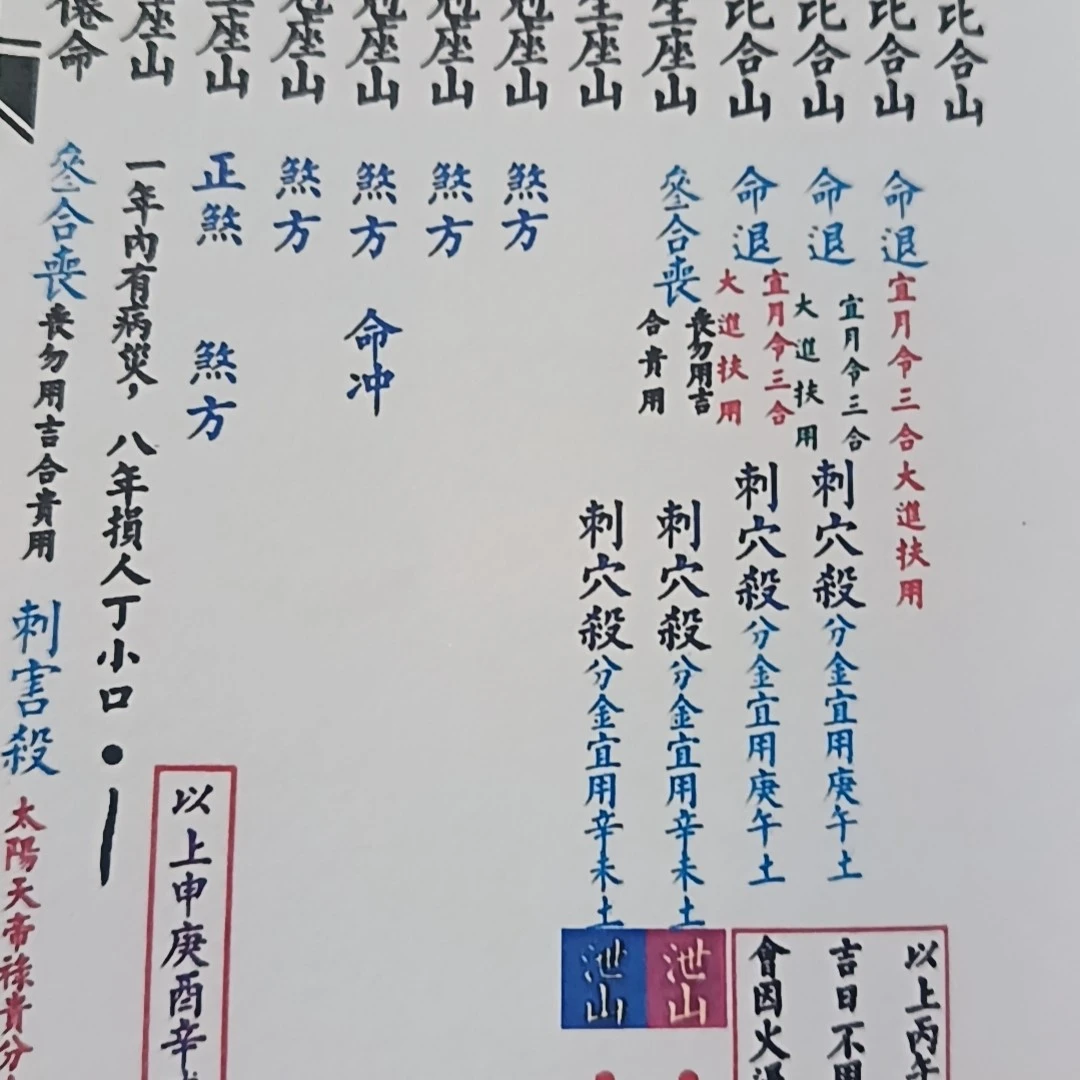 比合山
命退
宜月令三合大進扶用
以上丙午
比合山
命退
宜月令三合
大進扶用
刺穴殺
分金宜用庚午土
吉日不用
比合山
命退
宜月令三合
大進扶用
刺穴殺
分金宜用庚午土
會因火
座山
叅合喪
喪勿用吉
合貴用
刺穴殺
分金宜用辛未土
泄山
座山
刺穴殺
分金宜用辛未土
泄山
座山
煞方
座山
煞方
座山
煞方
命冲
座山
煞方
座山
正煞
煞方
以上申庚酉辛
座山
一年內有病災，八年損人丁小口
命
叅合喪
喪勿用吉合貴用
刺害殺
太陽天帝祿貴分